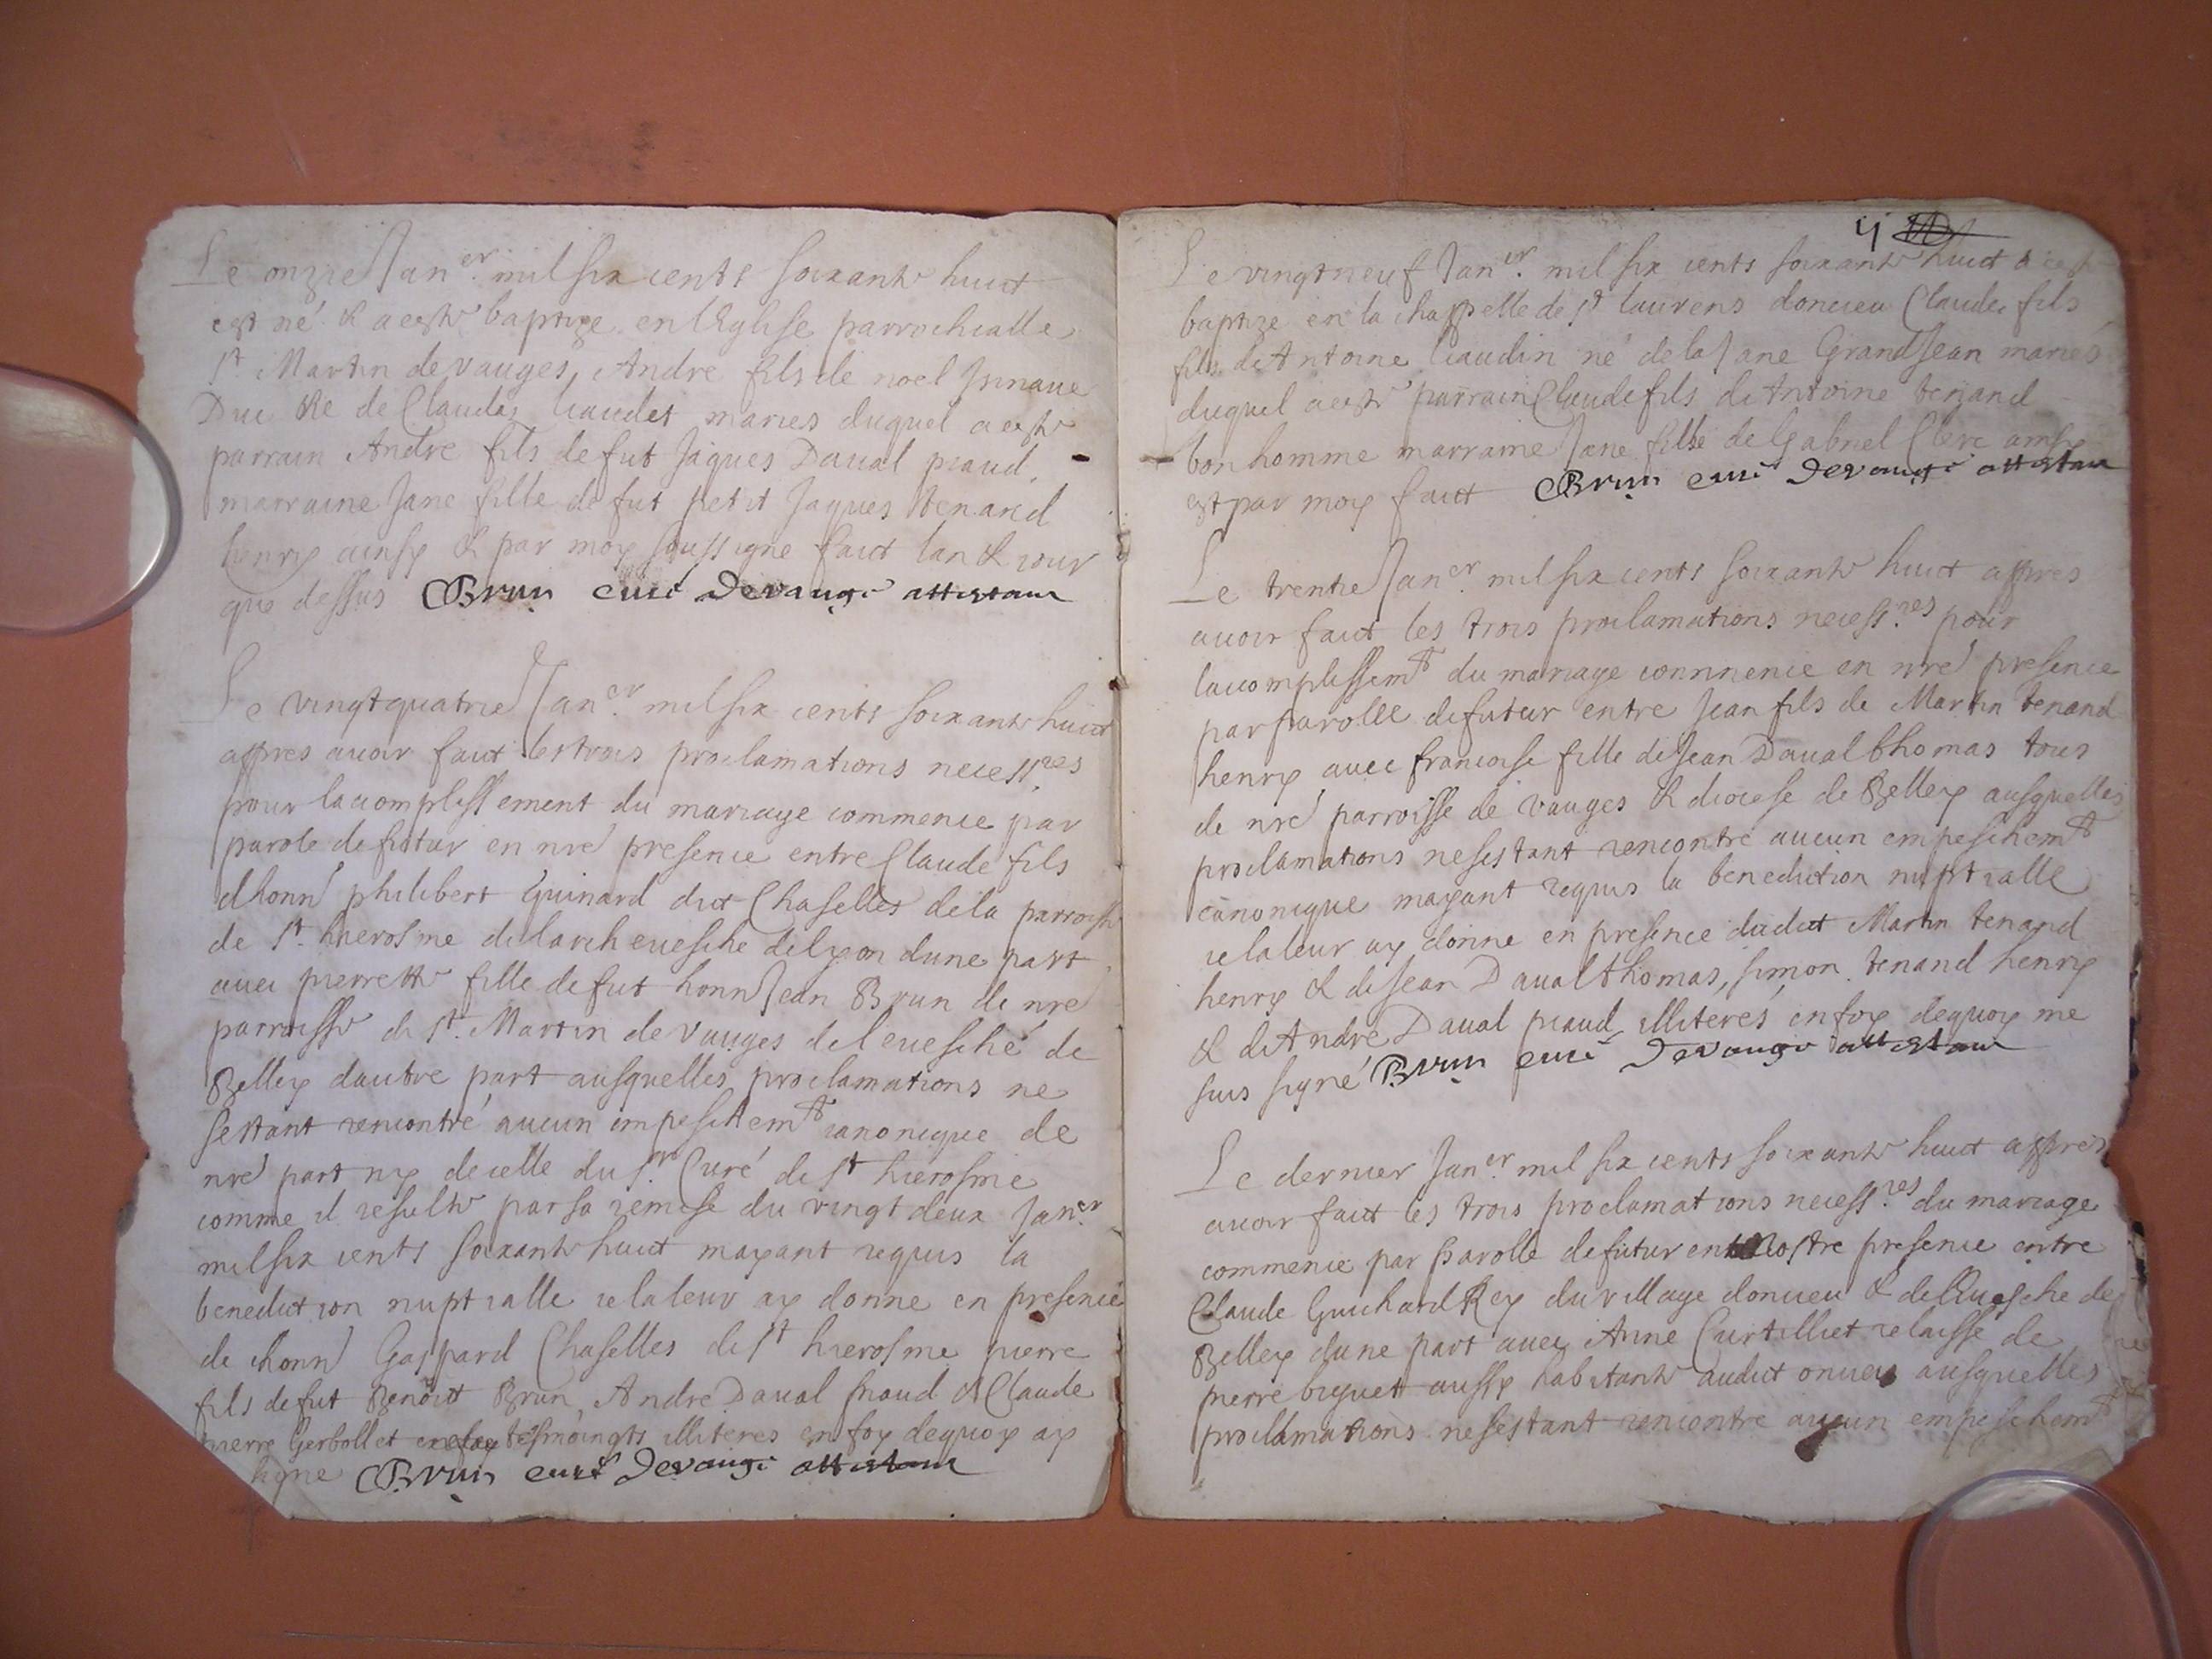 Le onzie Jan.er mil six cents soixante huict
est né & a este baptize en l'Eglise parrochialle
St Martin de vauges Andre fils de noel
Duc de Claude liaudet maries duquel a este
parrain Andre fils de fut Jaques Daual piaud
marraine Jane fille de fut petit Jaques tenand
henry ainsy & par moy soussigne faict lan & iour
que dessus Brun curé de vauge attestant
Le vingtquatrie Jan.er mil six cents soixante huict
appres auoir faict les trois proclamations necess.res
pour lacomplissement du mariage commence par
parole de futur en nre presence entre Claude fils
dhonn philibert Guinard dict Chaselles de la parroisse
de St. hierosme de larcheuesche de lyon dune part
auec pierrette fille de fut honn Jean Brun de nre
parroisse de St. Martin de vauges de leuesché de
Belley dautre part ausquelles proclamations ne
sestant rencontré aucun empeschemt canonique de
nre part ny de celle du Sr. Curé de St hierosme
comme il resulte par sa remise du vingt deux Jan.er
mil six cents soixante huict mayant requis la
benediction nuptialle ie la leur ay donne en presence
de honn Gaspard Chaselles de St hierosme pierre
fils de fut Benoict Brun, Andre Daual piaud & Claude
pierre Gerbollet tesmoingts illiteres en foy dequoy ay
signe Brun curé de vauge attestant
ij
Le vingtneuf Jan.er mil six cents soixante huict a este
baptize en la chappelle de St laurens doncieu Claude fils
fils de Antoine liaudin né de la Jane GrandJean maries
duquel a este parrain Claude fils de Antoine tenand
bonhomme marraine Jane fille de Gabriel Clerc ainsy
est par moy faict Brun curé de vauge attestant
Le trentie Jan.er mil six cents soixante huict appres
auoir faict les trois proclamations necess.res pour
lacomplissemt du mariage commence en nre presence
par parolle de futur entre Jean fils de Martin tenand
henry auec francoise fille de Jean Daual thomas tous
de nre parroisse de vauges & diocese de Belley ausquelles
proclamations ne sestant rencontré aucun empeschemt
canonique mayant requis la benediction nuptialle
ie la leur ay donne en presence dudict Martin tenand
henry & de Jean Daual thomas, simon tenand henry
& de Andre Daual piaud illiterés en foy dequoy me
suis signé Brun curé de vauge attestant
Le dernier Jan.er mil six cents soixante huict appres
auoir faict les trois proclamations necess.res du mariage
commence par parolle de futur en nostre presence entre
Claude Guichard Rey du village doncieu & de leuesche de
Belley dune part auec Anne Curtilliet relaisse de
pierre buguett aussy habitante audict oncieu ausquelles
proclamations ne sestant rencontre aucun empeschemt